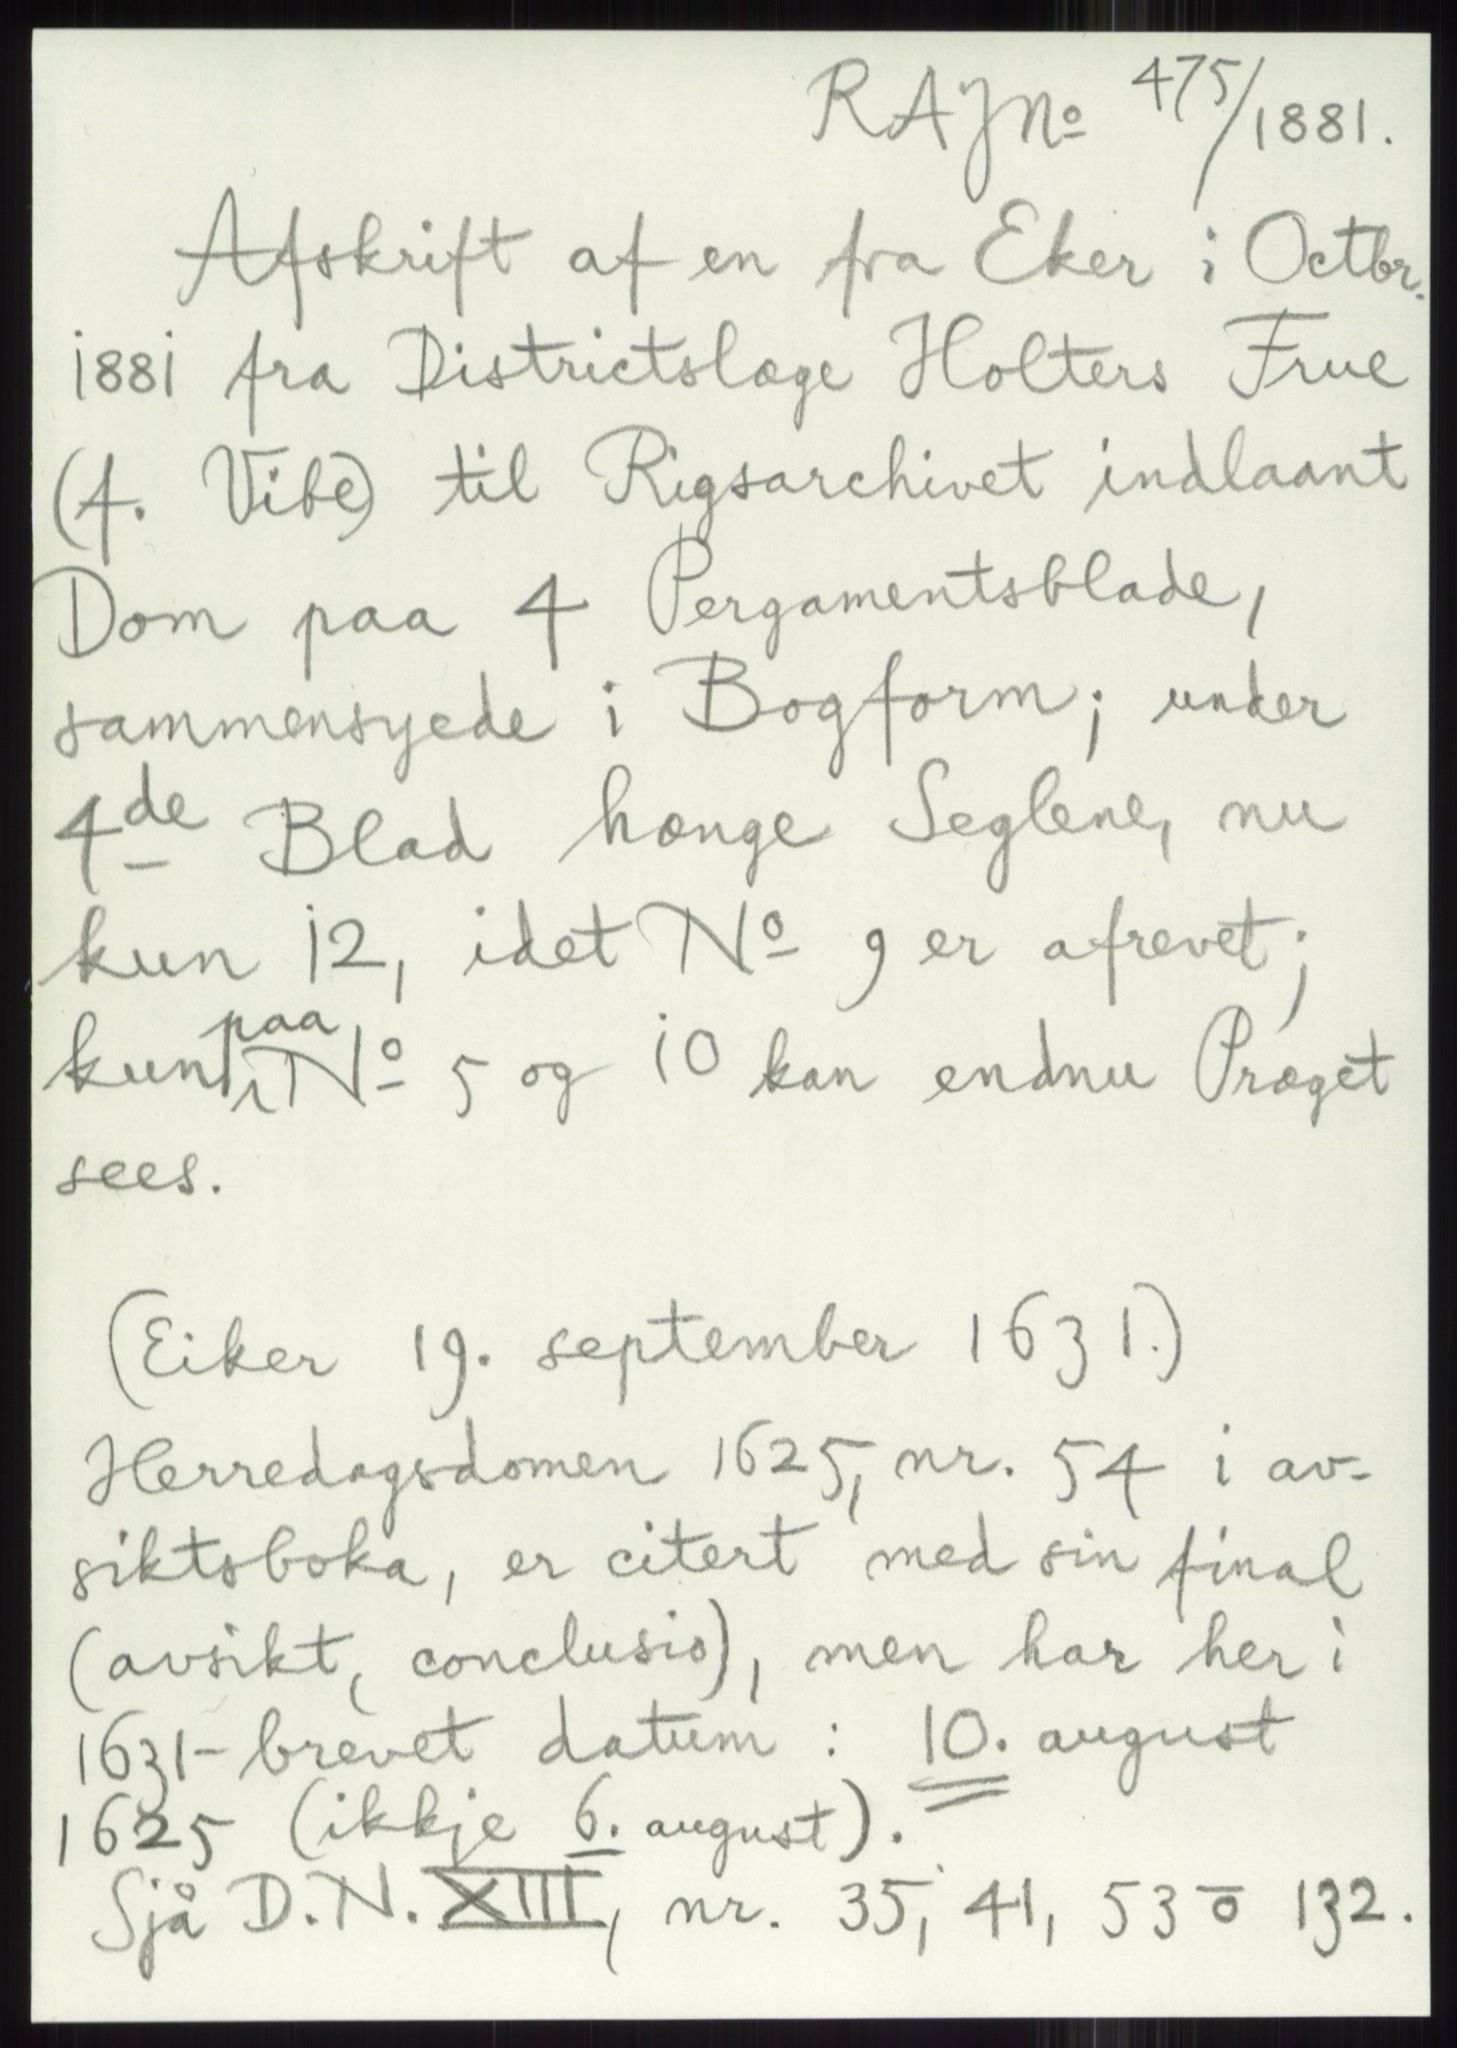 RAJNo 475/1881.
Afskrift af en fra Eker i Octbr.
1881 fra Districtslæge Holters Frue
(f. Vibe) til Rigsarchivet indlaant
Dom paa 4 Pergamentsblade,
sammensyede i Bogform; under
4de Blad hænge Seglene, nu
kun 12, idet No 9 er afrevet;
kun paa No 5 og 10 kan endnu Præget
sees.
(Eiker 19. september 1631.)
Herredagsdomen 1625, nr. 54 i av-
siktsboka, er citert med sin final
(avsikt, conclusio), men har her i
1631-brevet datum: 10. august
1625 (ikkje 6. august).
Sjå D.N. XIII, nr. 35, 41, 53 o 132.